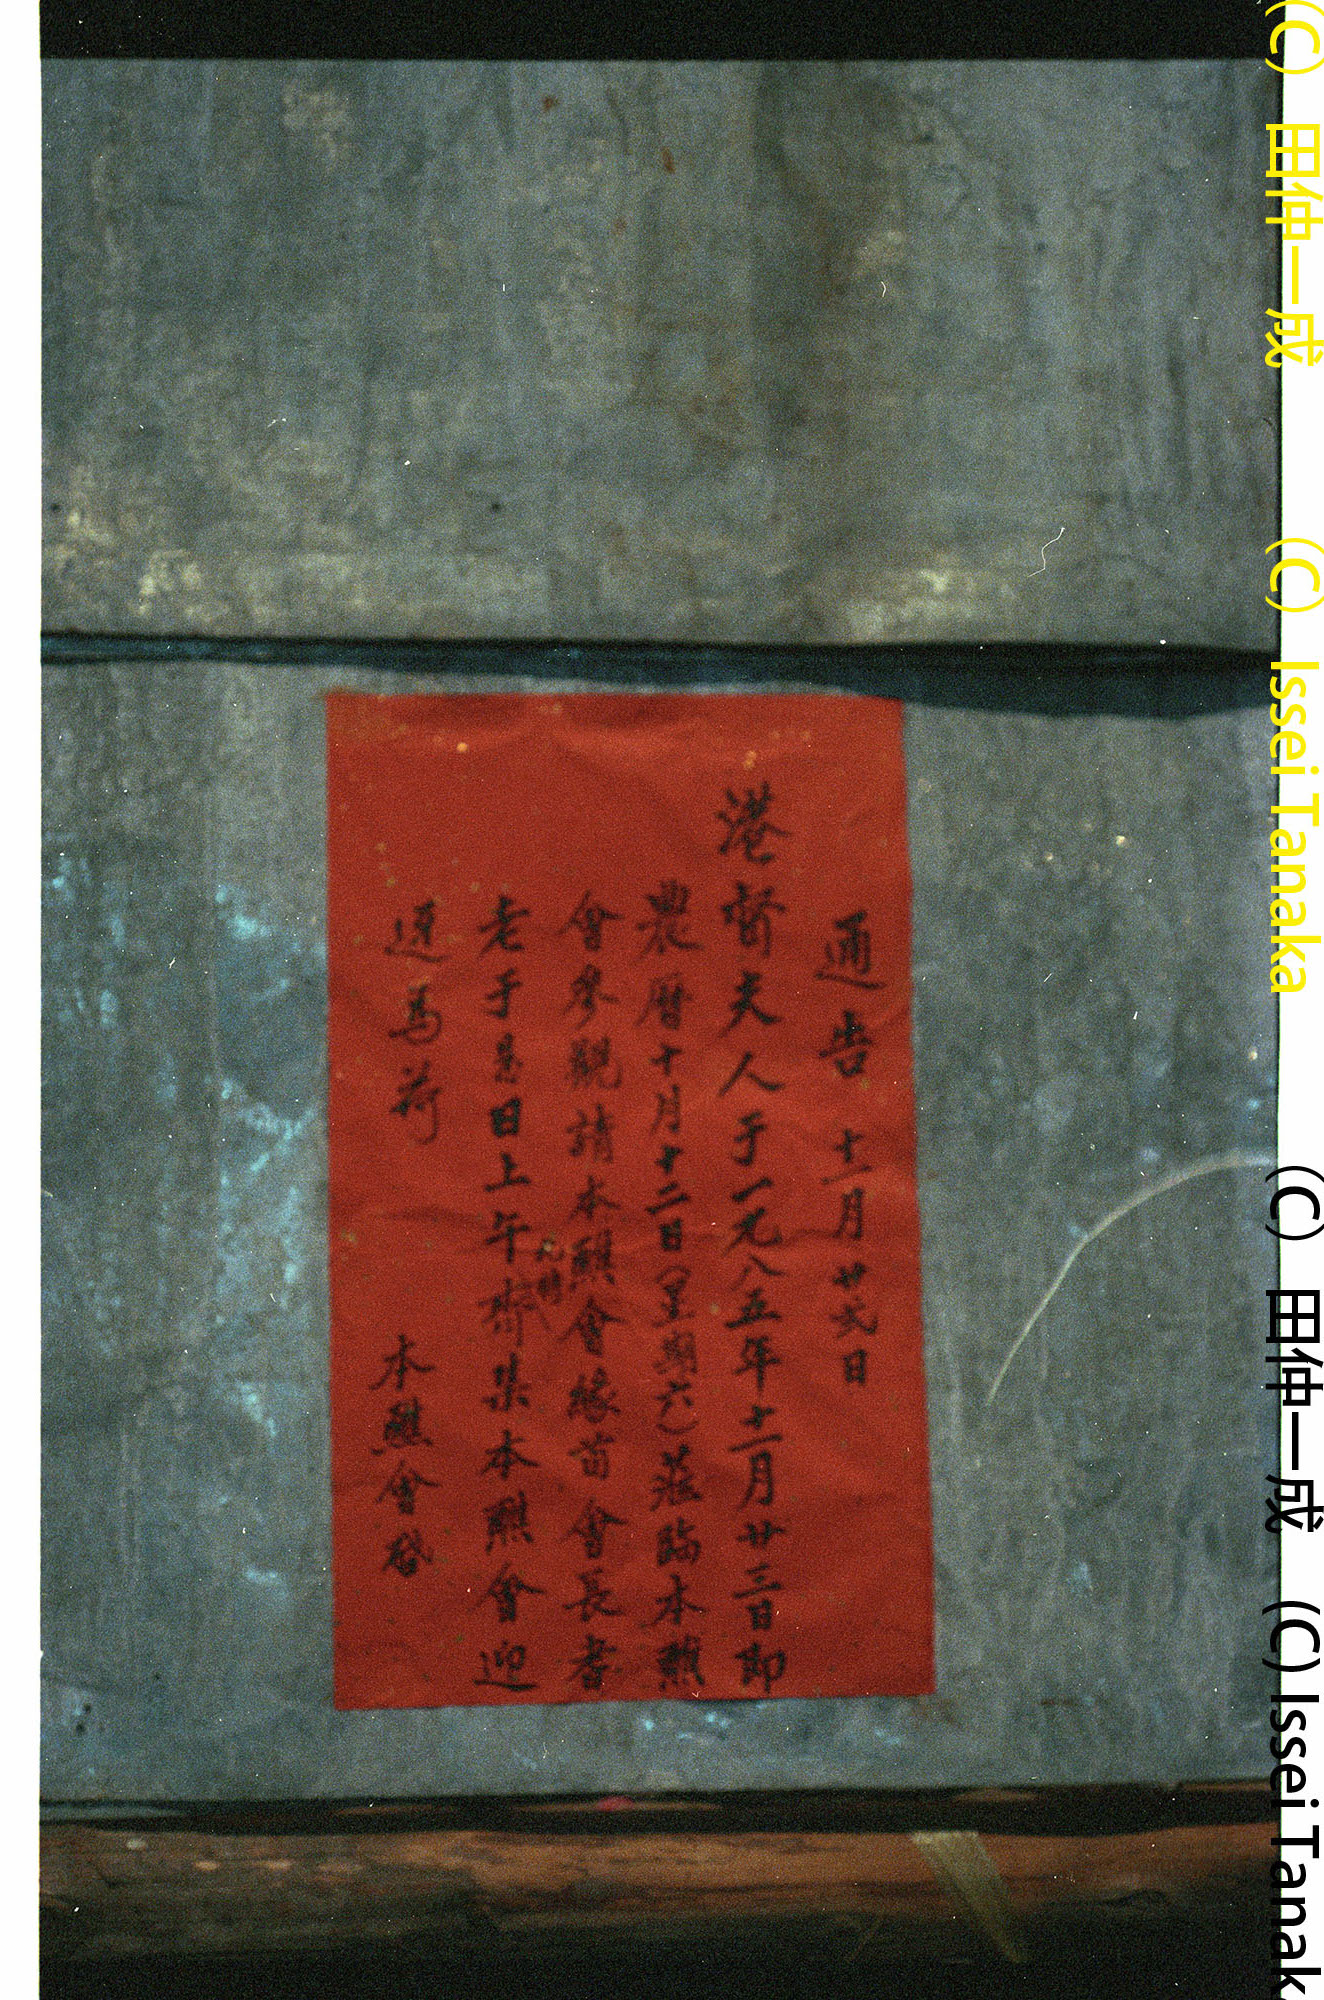 通告 十一月廿六日
港督夫人于一九八五年十一月廿三日即
農曆十月十二日(星期六)莊臨本醮
會參觀請本醮會緣首會長耆
老于是日上午九時齊集本醮會迎
迓為荷
本醮會啟
(C) 田仲一成 (C) Issei Tanaka
(C) 田仲一成 (C) Issei Tanak